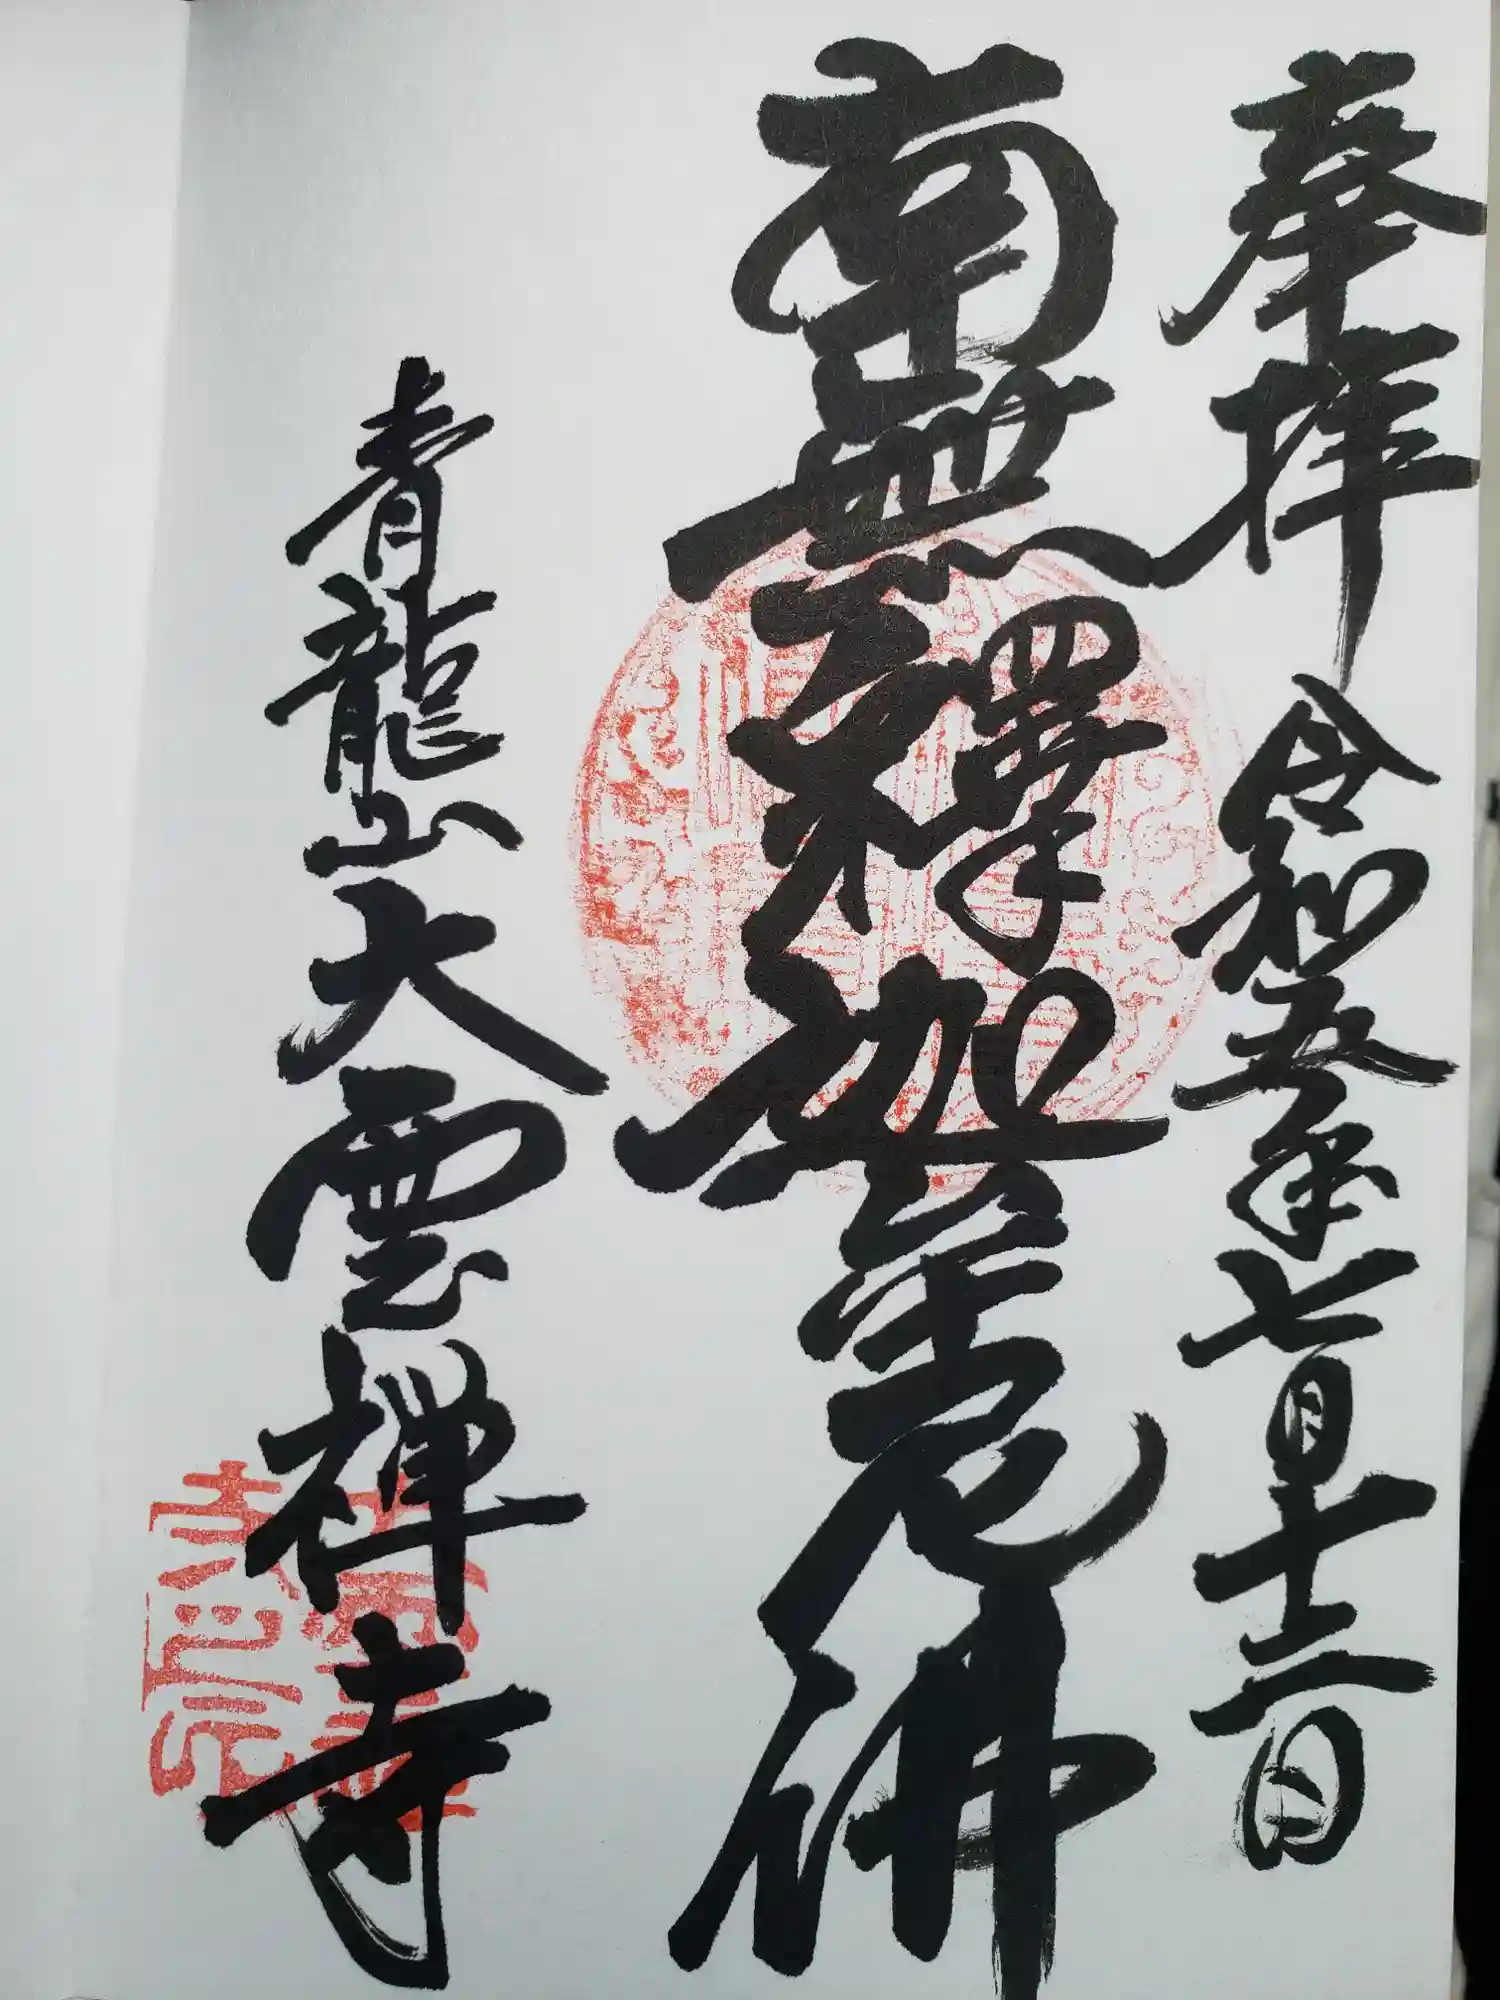 奉拝 令和五年七月十二日
南無釋迦牟尼佛
青龍山大雲禅寺